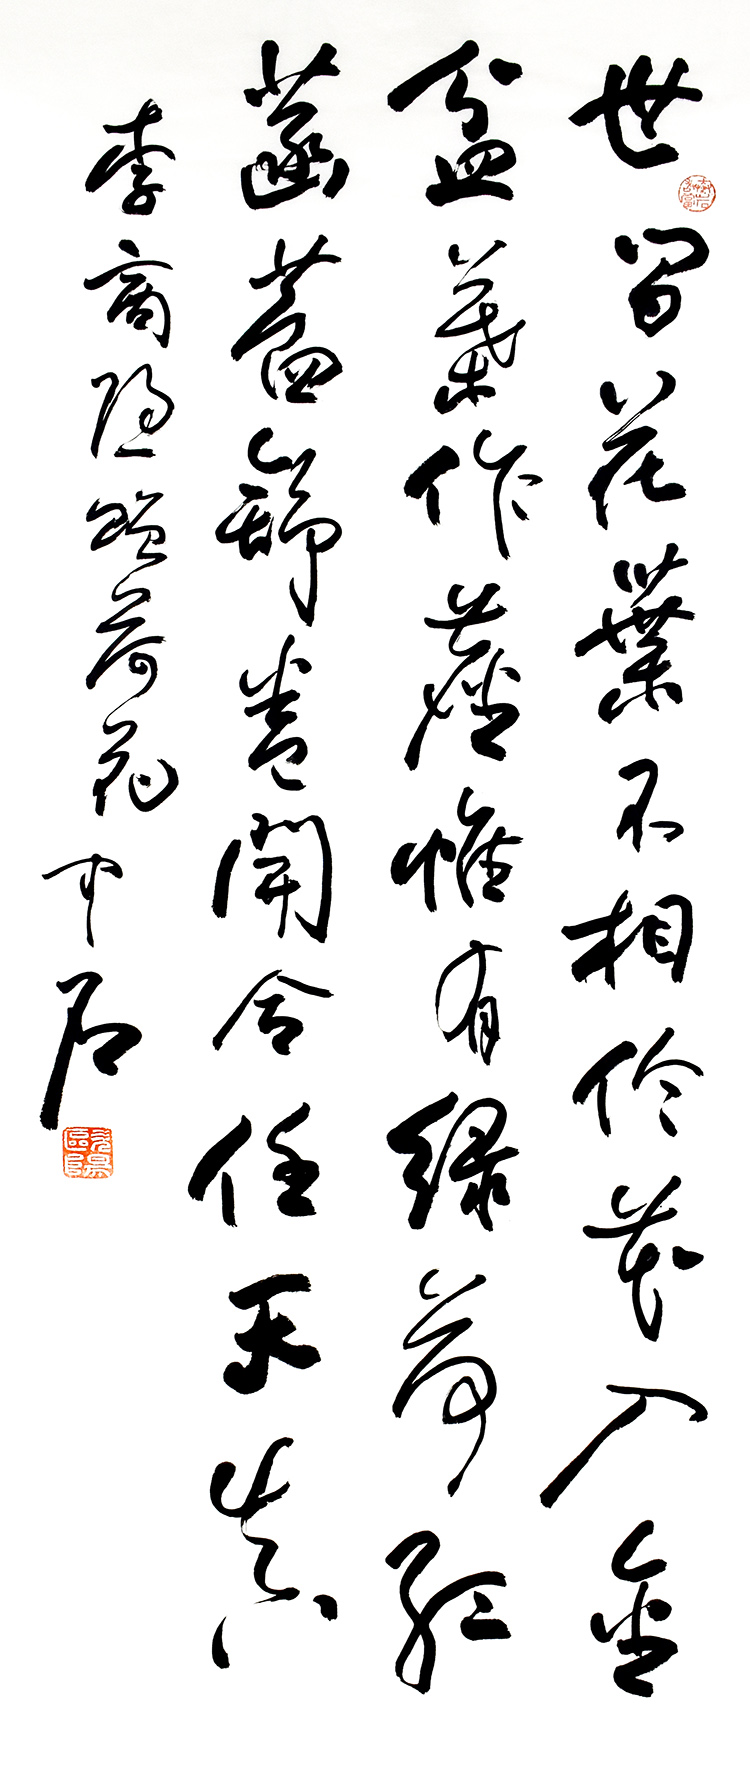 世間花葉不相倫花入金
盆葉作塵惟有緑荷紅
菡萏舒卷開合任天真
李商隐贈荷花中石